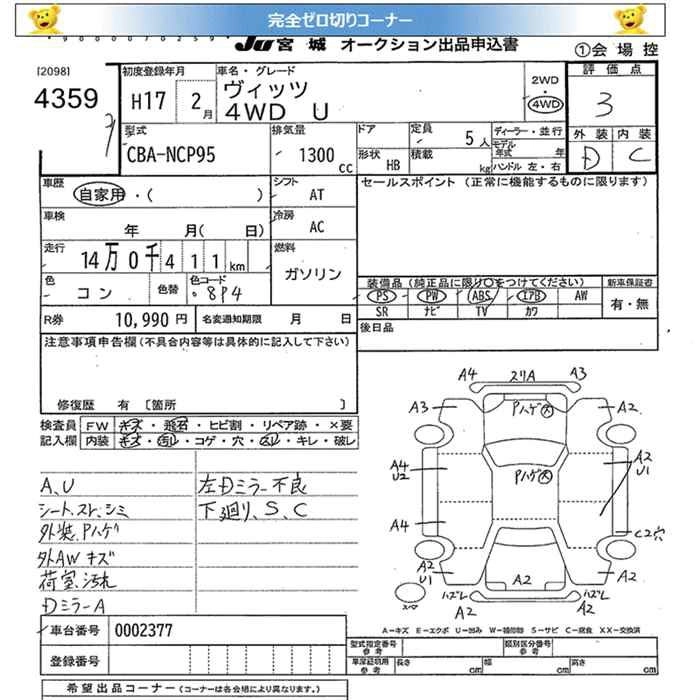 完全ゼロ切りコーナー
90000070259
JU 宮城 オークション出品申込書
①会場控
[2098]
4359
初度登録年月
H17 2月
車名・グレード
ヴィッツ
4WD U
2WD
・
4WD
評価点
3
外装 内装
D C
型式
CBA-NCP95
排気量
1300 cc
ドア
形状 HB
定員 5人
積載 kg
ディーラー・並行
モデル年式 年
ハンドル 左・右
車歴
自家用・( )
シフト
AT
セールスポイント (正常に機能するものに限ります)
車検
年 月( 日)
冷房
AC
走行
14万0千411km
燃料
ガソリン
色
コン
色替
色コード
8P4
装備品 (純正品に限り○をつけてください)
新車保証書
PS PW ABS エアB AW
SR ナビ TV カワ
有・無
R券 10,990円
名変通知期限 月 日
後日品
注意事項申告欄 (不具合内容等は具体的に記入して下さい)
修復歴 有 [箇所 ]
検査員記入欄
FW キズ・飛石・ヒビ割・リペア跡・×要
内装 キズ・汚れ・コゲ・穴・スレ・キレ・破レ
A、U
シート、スレ、シミ
外装、Pハゲ
外AWキズ
荷室、汚れ
DミラーA
左Dミラー不良
下廻り、S、C
A4 スリA A3
A3 Pハゲ大 A2
A4
U2
Pハゲ大
A2
U1
A4
C2穴
A2
U1
A2
A2
ハズレ
A2
ハズレ
A2
スペア
A-キズ E-エクボ U-凹み W-補修跡 S-サビ C-腐食 XX-交換済
車台番号 0002377
登録番号
型式指定番号 参考
類別区分番号 参考
車庫証明用 参考
長さ cm 幅 cm 高さ cm
希望出品コーナー (コーナーは各会場により異なります。)